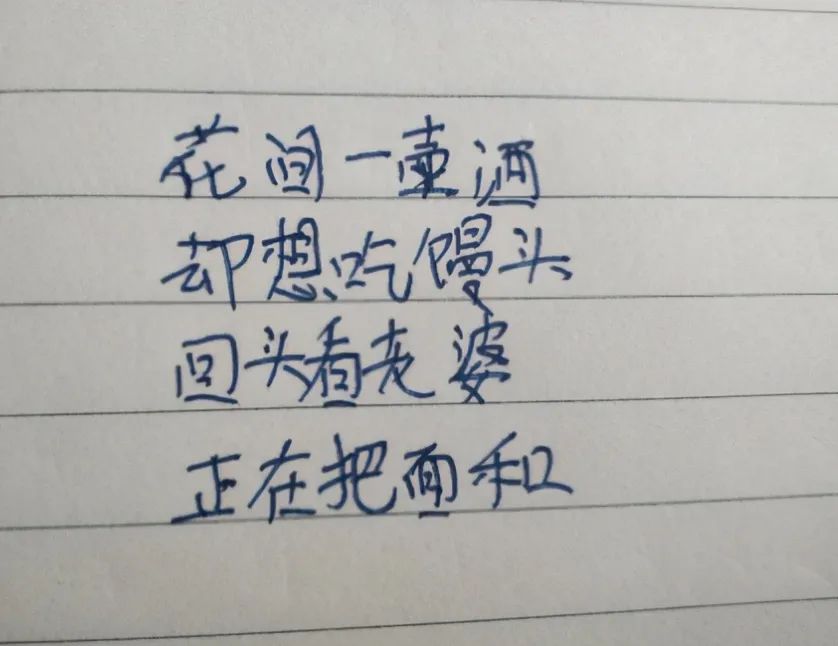 花间一壶酒
却想吃馒头
回头看老婆
正在把面和